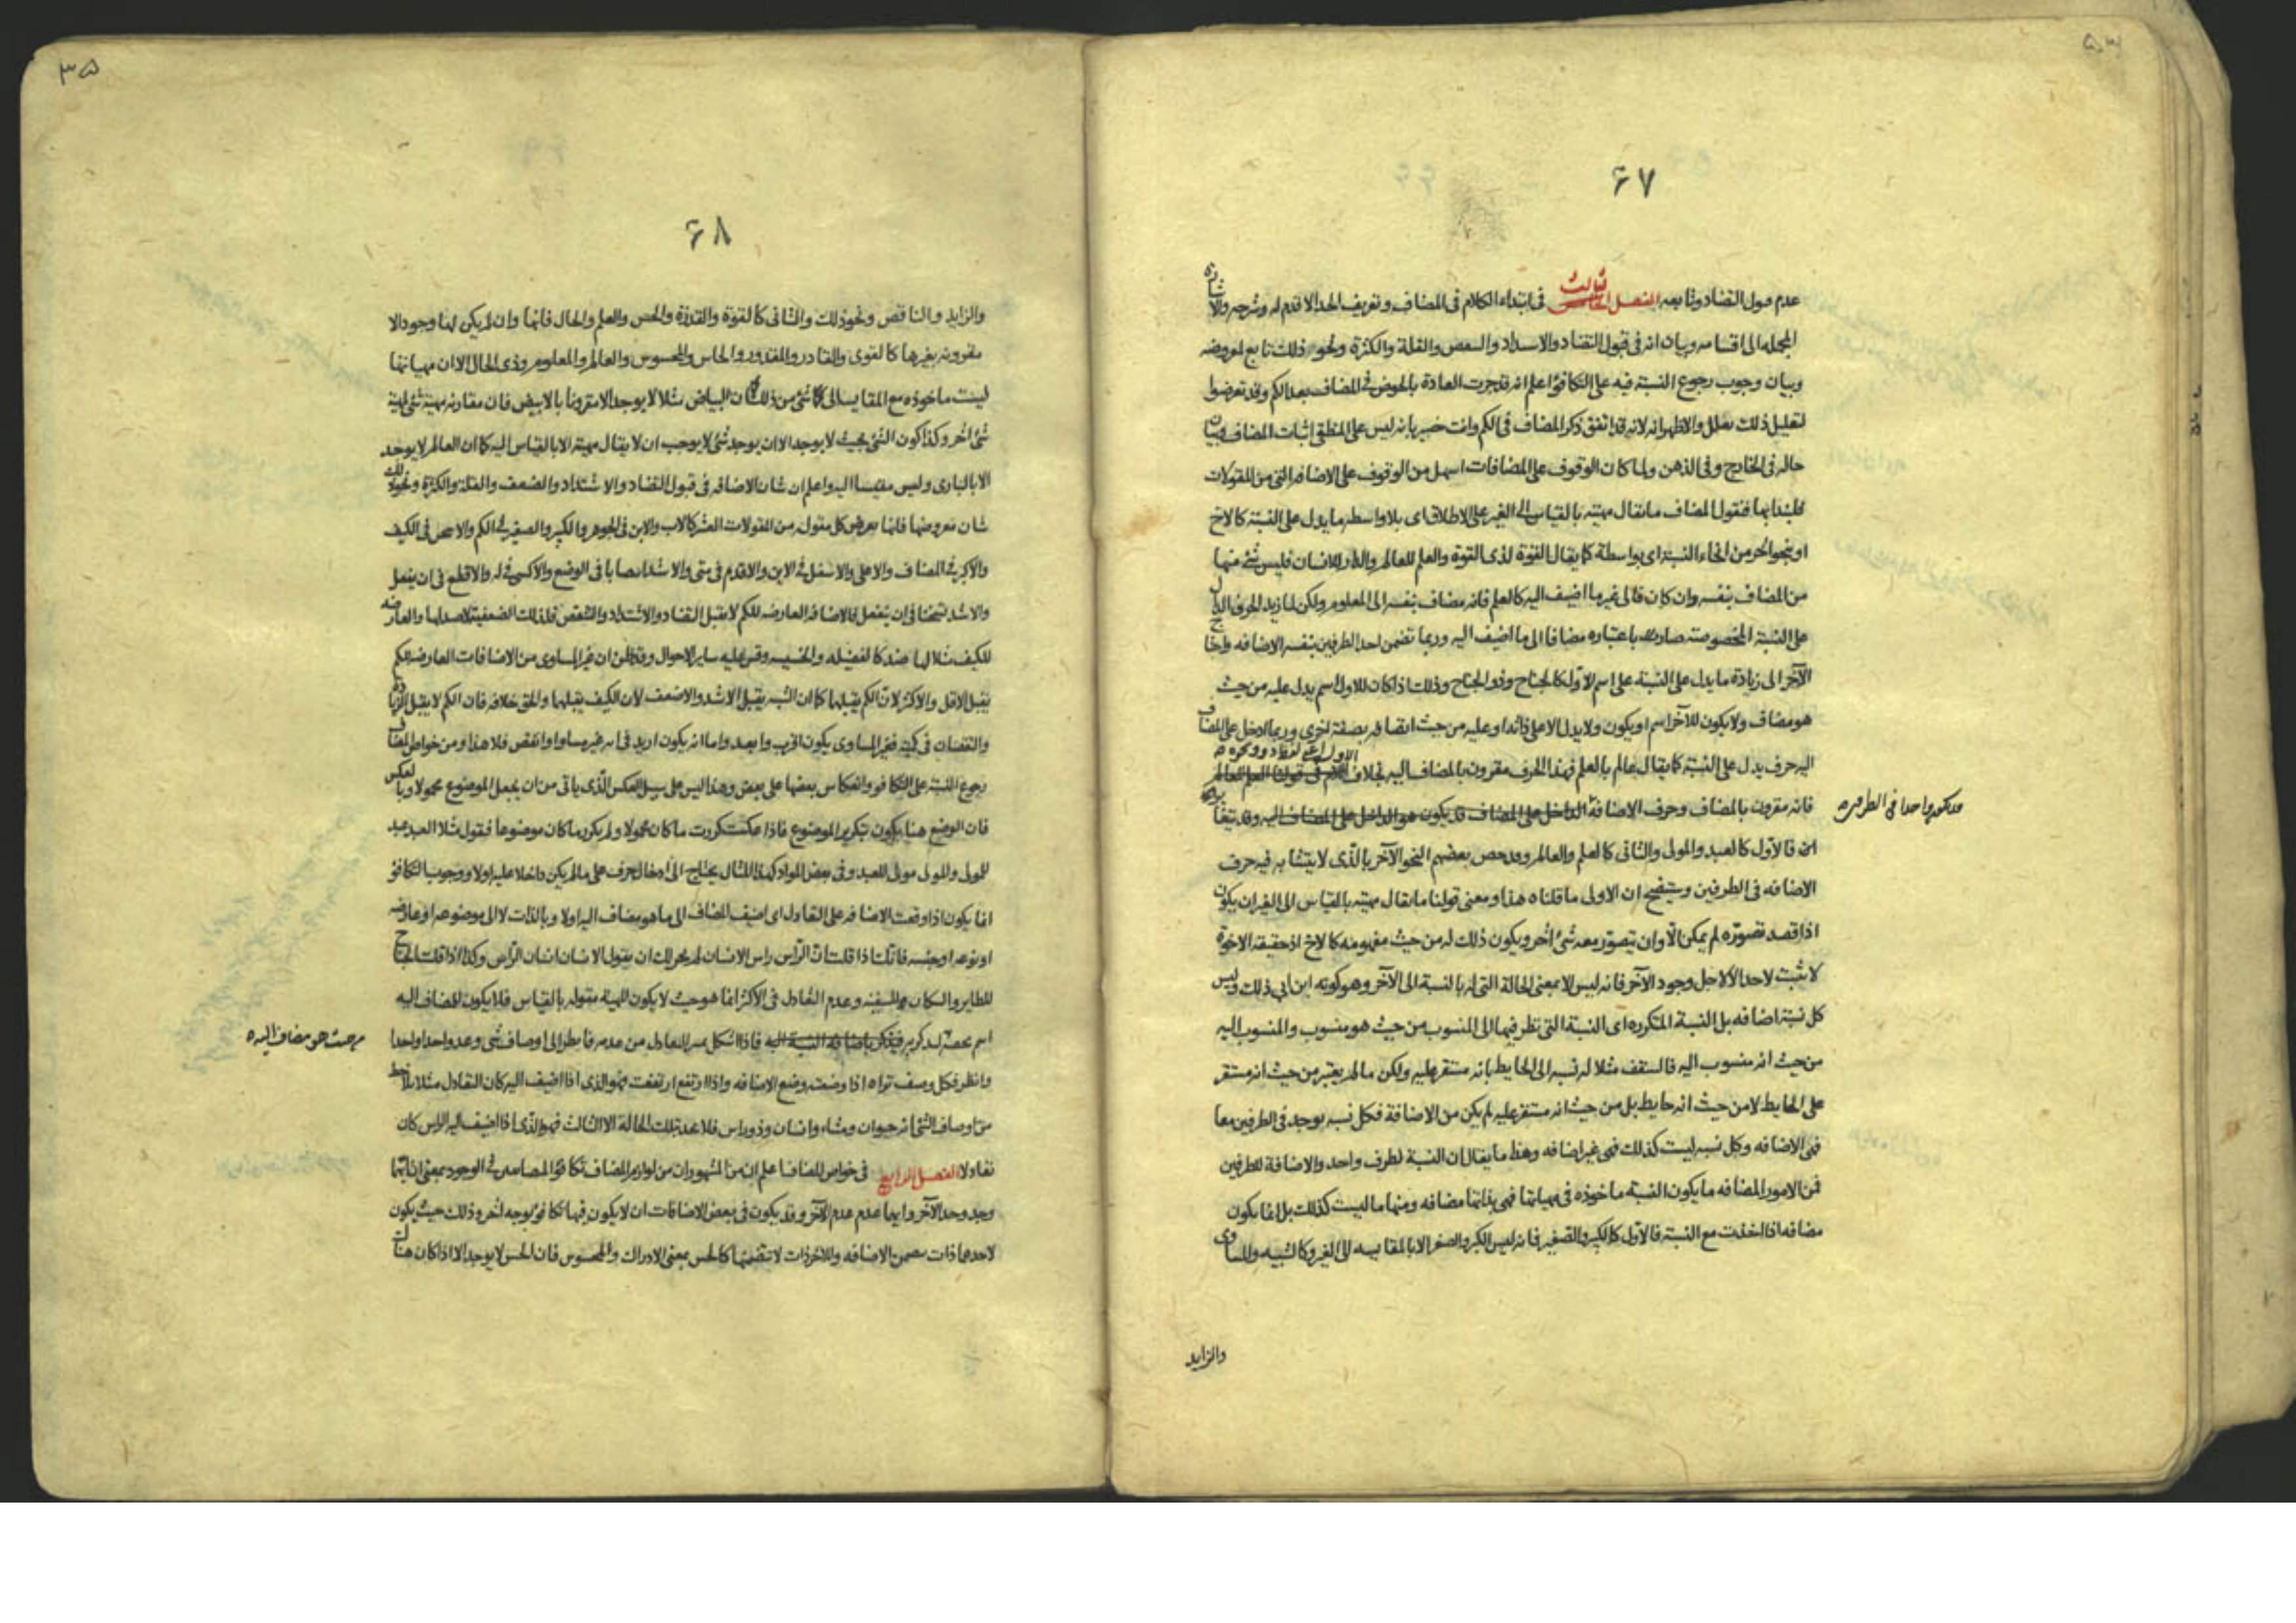 ۶۷
عدم قبول التضاد وتابعه الفصل الثالث فى ابتداء الكلام فى المضاف وتعريف الحد الاقدم له وشرحه والاشارة
المجمله الى اقسامه وبيان انه فى قبول التضاد والاشتداد والضعف والقلة والكثرة ونحو ذلك تابع لمعروضه
وبيان وجوب رجوع النسبة فيه على التكافؤ اعلم انه قد جرت العادة بالخوض فى المضاف بعد الكم وقد تعرضوا
لتعليل ذلك بعلل والاظهر انه لانه قد اتفق ذكر المضاف فى الكم وانت خبير بانه ليس على المنطقى اثبات المضاف وبيان
حاله فى الخارج وفى الذهن ولما كان الوقوف على المضافات اسهل من الوقوف على الاضافه التى من المقولات
فلنبدا بها فنقول المضاف ما يقال مهيته بالقياس الى الغير على الاطلاق اى بلا واسطه ما يدل على النسبة كالاخ
او بنحو آخر من انحاء النسبة اى بواسطة كما يقال القوة لذى القوة والعلم للعالم والدار للانسان فليس شئ منها
من المضاف بنفسه وان كان فالى غير ما اضيف اليه كالعلم فانه مضاف بنفسه الى المعلوم ولكن لما زيد الحرف الدال
على النسبة المخصوصة صار باعتباره مضافا الى ما اضيف اليه وربما تضمن احد الطرفين بنفسه الاضافه واحتاج
الآخر الى زيادة ما يدل على النسبة على اسم الاول كالجناح وذو الجناح وذلك اذا كان للاول اسم يدل عليه من حيث
هو مضاف ولا يكون للآخر اسم او يكون ولا يدل الا على ذاته او عليه من حيث اتصافه بصفة اخرى وربما دخل على المضاف
اليه حرف يدل على النسبة كما يقال عالم بالعلم فهذا الحرف مقرون بالمضاف اليه بخلاف اللام فى قولنا العلم للعالم
فانه مقرون بالمضاف وحرف الاضافة الداخل على المضاف قد يكون هو الداخل على المضاف اليه وقد يتغاير
فالاول كالعبد والمولى والثانى كالعلم والعالم وقد خص بعضهم النحو الآخر بالذى لا يتشابه فيه حرف
الاضافه فى الطرفين وستفصح ان الاولى ما قلناه هذا ومعنى قولنا ما يقال مهيته بالقياس الى الغير ان يكون
اذا قصد تصوره لم يمكن الا وان يتصور معه شئ آخر ويكون ذلك له من حيث مفهومه كالاخ اذ حقيقة الاخوة
لا تثبت لاحد الا لاجل وجود الآخر فانه ليس الا بمعنى الحالة التى له بالنسبة الى الآخر وهو كونه ابن ابى ذلك وليس
كل نسبة اضافه بل النسبة المتكرره اى النسبة التى نظر فيها الى المنسوب من حيث هو منسوب والمنسوب اليه
من حيث انه منسوب اليه فالسقف مثلا له نسبه الى الحايط بانه مستقر عليه ولكن ما لم يعتبر من حيث انه مستقر
على الحايط لا من حيث انه حايط بل من حيث انه مستقر عليه لم يكن من الاضافة فكل نسبه يوجد فى الطرفين معا
فهى الاضافه وكل نسبه ليست كذلك فهى غير اضافه وهذا ما يقال ان النسبة لطرف واحد والاضافة للطرفين
فمن الامور المضافه ما يكون النسبة ماخوذه فى مهياتها فهى بذاتها مضافه ومنها ما ليست كذلك بل انما يكون
مضافه اذا اخذت مع النسبة فالاول كالكبير والصغير فانه ليس الكبر والصغر الا بالمقايسه الى الغير وكالشبيه والمساوى
والزايد
۳۵
۶۸
والزايد والناقص ونحو ذلك والثانى كالقوة والقدرة والحس والعلم والحال فانها وان لم يكن لها وجود الا
مقرونه بغيرها كالقوى والقادر والمقدور والحاس والمحسوس والعالم والمعلوم وذى الحال الا ان مهياتها
ليست ماخوذه مع المقايسه الى شئ من ذلك كما ان البياض مثلا لا يوجد الا مقرونا بالابيض فان مقارنه مهية شئ لمهية
شئ آخر وكذا كون الشئ بحيث لا يوجد الا ان يوجد شئ لا يوجب ان لا يقال مهيته الا بالقياس اليه كما ان العالم لا يوجد
الا بالبارى وليس مقيسا اليه واعلم ان شان الاضافه فى قبول التضاد والاشتداد والضعف والقلة والكثرة ونحو ذلك
شان معروضها فانها يعرض كل مقوله من المقولات العشر كالاب والابن فى الجوهر والكبير والصغير فى الكم والاسخن فى الكيف
والاكبر فى المضاف والاعلى والاسفل فى الاين والاقدم فى متى والاشد انتصابا فى الوضع والاكسى فى له والاقطع فى ان يفعل
والاشد تسخنا فى ان ينفعل فالاضافه العارضه للكم لا يقبل التضاد والاشتداد والتنقص فلذلك الضعفية لا ضد لها والعارضه
للكيف مثلا لها ضد كالفضيله والخسيسه وقس عليه ساير الاحوال وقد ظن ان غير المساوى من الاضافات العارضه للكم
يقبل الاقل والاكثر لان الكم يقبلها كما ان الشبيه يقبل الاشد والاضعف لان الكيف يقبلهما والحق خلافه فان الكم لا يقبل الزيادة
والنقصان فى كميته فغير المساوى يكون اقرب وابعد واما انه يكون ازيد فى انه غير مساو او انقص فلا هذا ومن خواص المضاف
رجوع النسبة على التكافؤ وانعكاس بعضها على بعض وهذا ليس على سبيل العكس الذى ياتى من ان يجعل الموضوع محمولا وبالعكس
فان الوضع هنا يكون بتكرير الموضوع فاذا عكست كررت ما كان محمولا ولم يكرر ما كان موضوعا فنقول مثلا العبد عبد
للمولى والمولى مولى للعبد وفى بعض المواد كهذا المثال يحتاج الى ادخال حرف على ما لم يكن داخلا عليه اولا ووجوب التكافؤ
انما يكون اذا وقعت الاضافه على التعادل اى اضيف المضاف الى ما هو مضاف اليه اولا وبالذات لا الى موضوعه او عارضه
او نوعه او جنسه فانك اذا قلت ان الراس راس الانسان لم يجز لك ان يقول الانسان انسان الراس وكذا اذا قلت الجناح
للطاير والسكان للسفينه وعدم التعادل فى الاكثر انما هو حيث لا يكون للهيئة مقوله بالقياس فلا يكون للمضاف اليه
من حيث هو مضاف اليه
وانظر فكل وصف تراه اذا وضعته وضع الاضافه واذا ارتفع ارتفعت فهو الذى اذا اضيف اليه كان التعادل مثلا تلاحظ
من اوصاف الشئ انه حيوان ومشاء وانسان وذو راس فلا عدة تلك الحالة الا الثالث فهو الذى اذا اضيف اليه الراس كان
تعادلا الفصل الرابع فى خواص المضاف اعلم ان من المشهور ان من لوازم المضاف تكافؤ المضافين فى الوجود بمعنى ان ايهما
وجد وجد الآخر وايهما عدم عدم الآخر وقد يكون فى بعض الاضافات ان لا يكون فيها تكافؤ بوجه آخر وذلك حيث يكون
لاحدهما ذات بضمن الاضافه وللآخر ذات لا تتضمنها كالحس بمعنى الادراك والمحسوس فان الحس لا يوجد الا اذا كان هناك